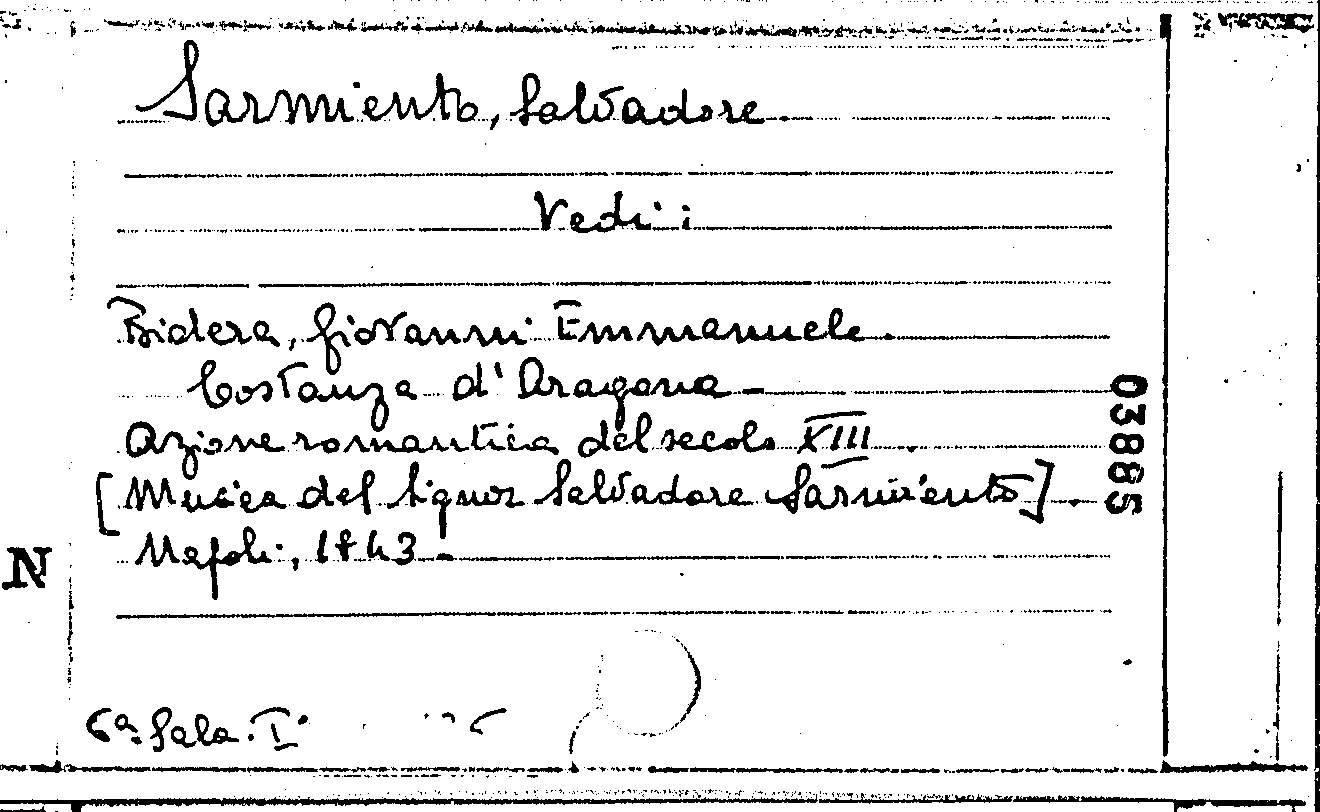 Sarmiento, Salvadore.
Vedi:
Bidera, Giovanni Emmanuele.
Costanza d'Aragona -
Azione romantica del secolo XIII.
[Musica del Signor Salvadore Sarmiento].
Napoli, 1843 -
03885
N
6ª Sala. I